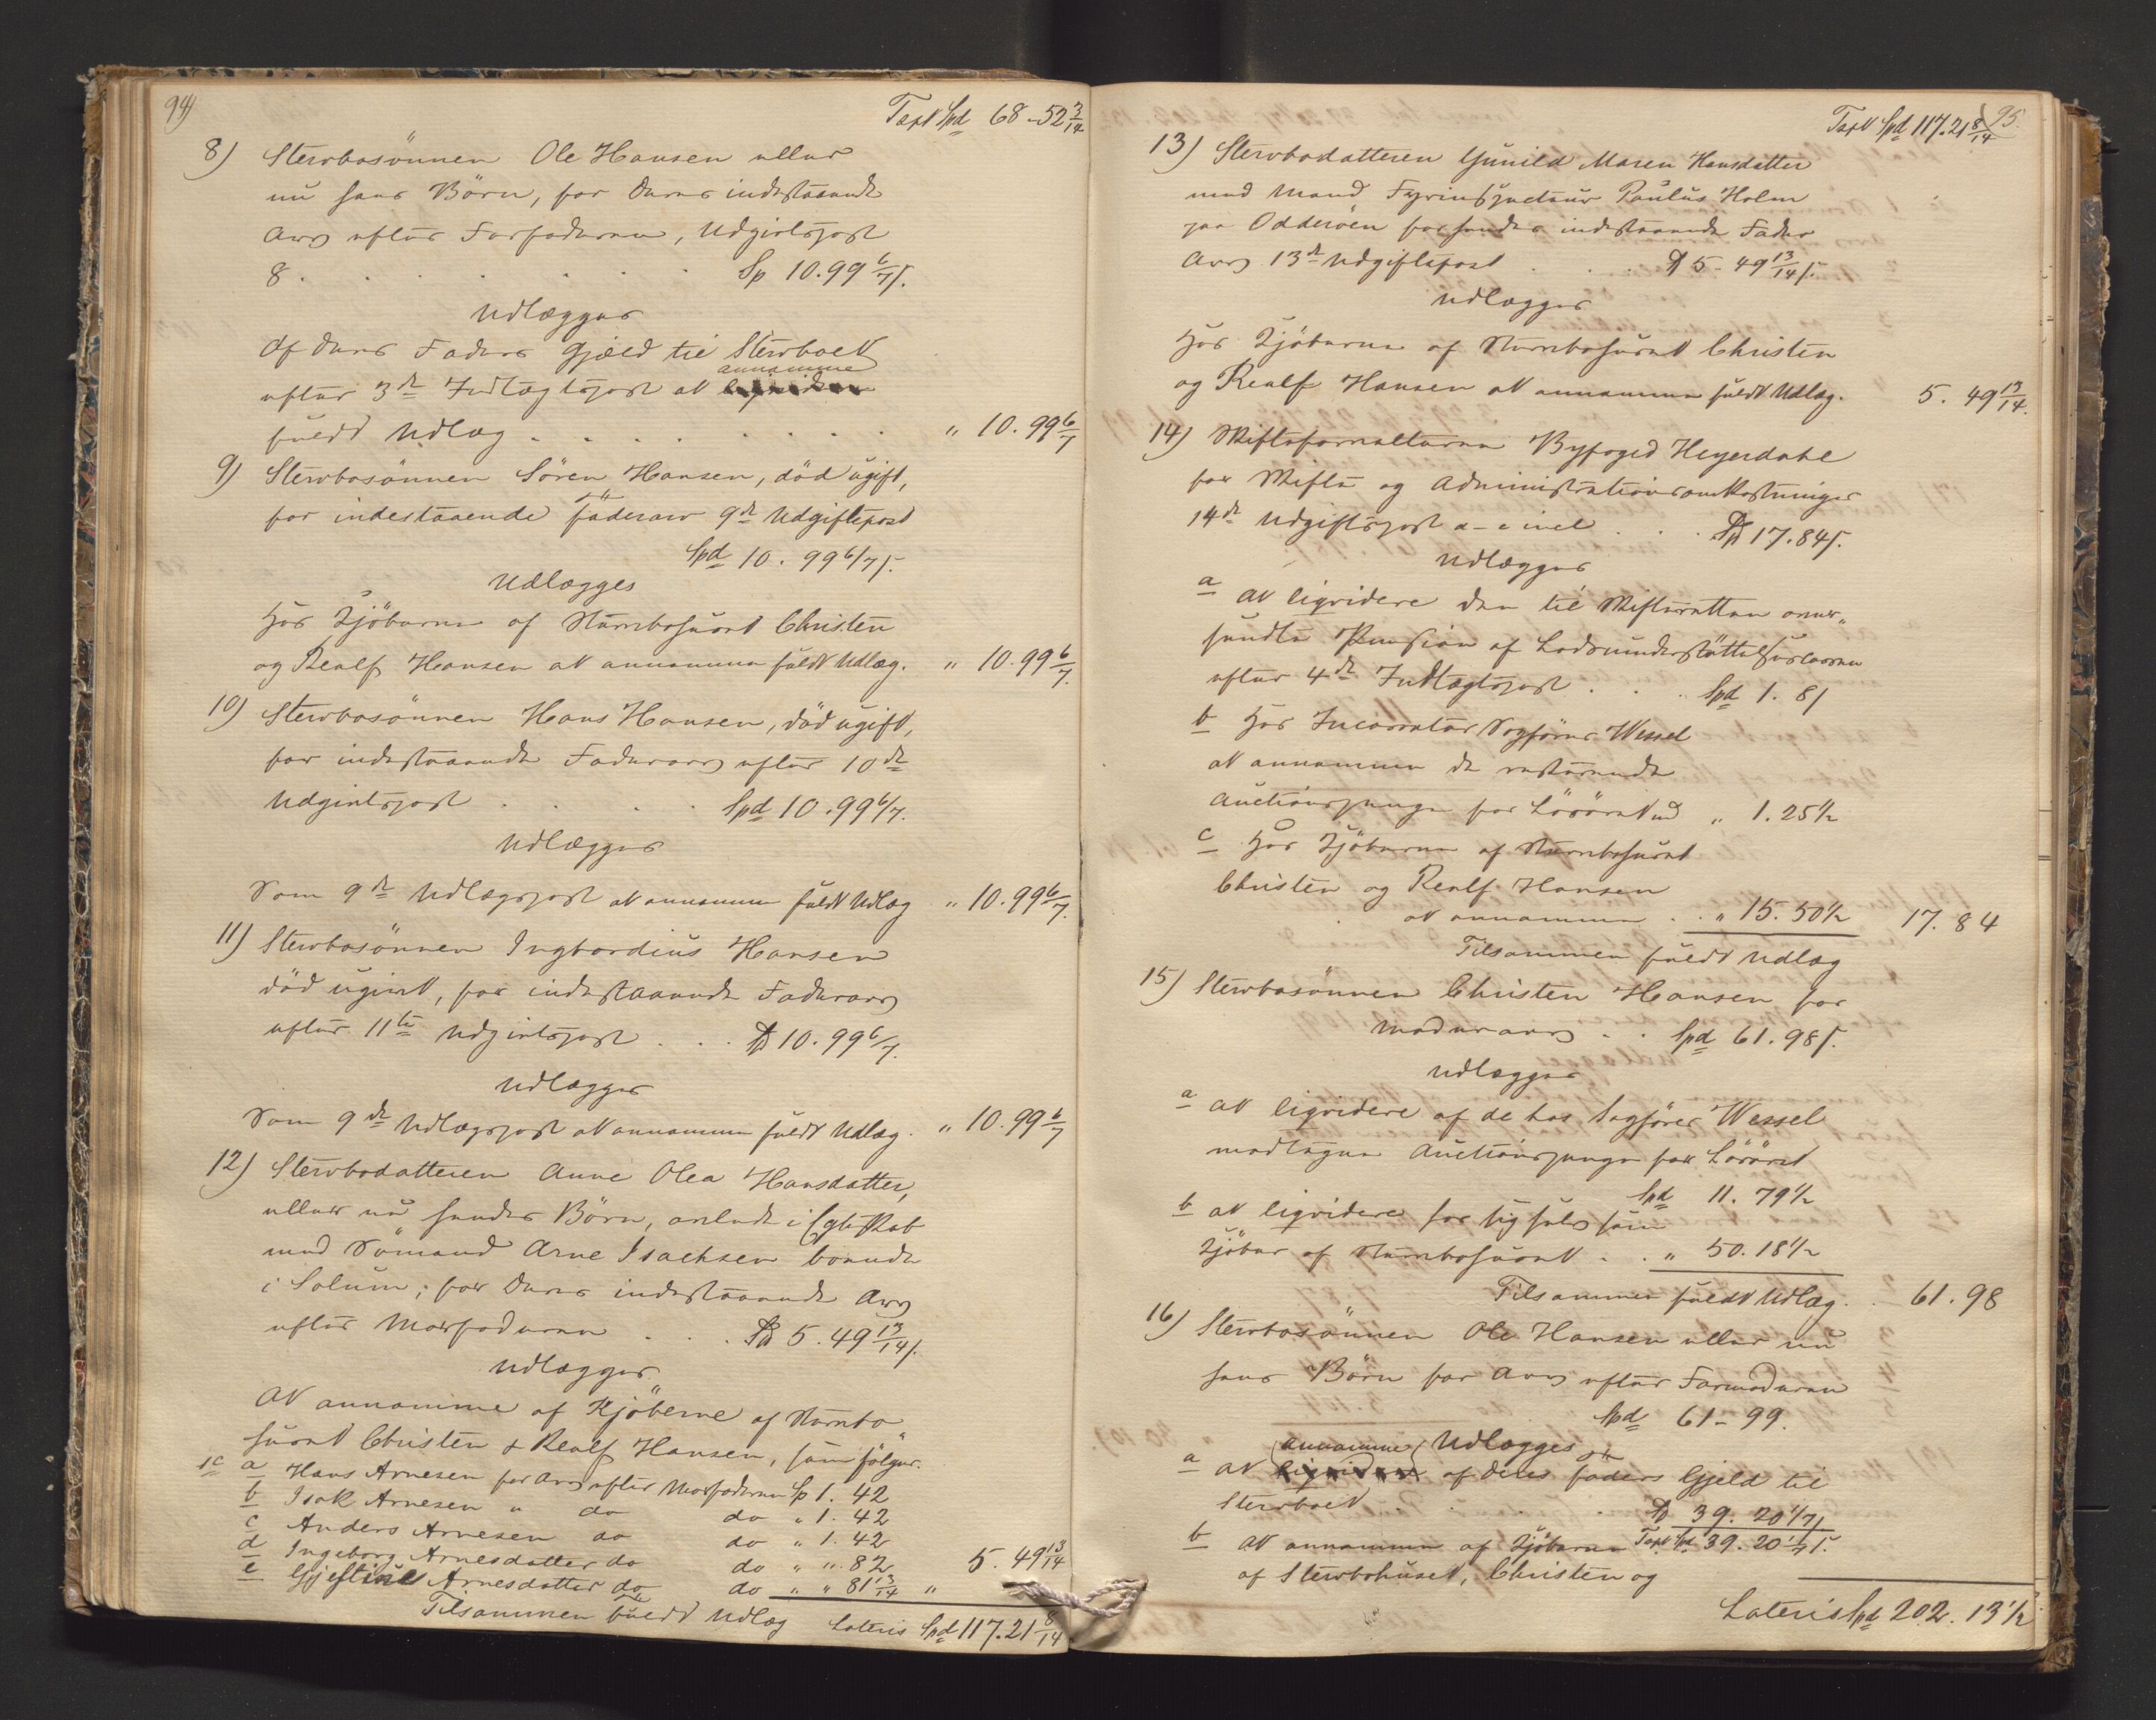 94)
Tspt Spd 68-52 3/14
8) Stervbosönnen Ole Hansen eller
nu hans Börn, for deres indestaaende
Arv efter Farfaderen, Udgivtspost
8. . . . . . . Sp 10.99 6/7 s.
Udlægges
Af deres Faders Gjæld til Stervboet
annamme
efter 3de Indtægtspost at
fuldt Udlæg . . . . . . . " 10.99 6/7
9) Stervbosönnen Sören Hansen, död ugift,
for indestaaende fäderarv 9de Udgiftspost
Spd 10. 99 6/7 s.
Udlægges
Hos Kjöberne af Stervbohuset Christen
og Realf Hansen at annamme fuldt Udlæg. " 10.99 6/7.
10) Stervbosönnen Hans Hansen, död ugift,
for indestaaende Faderarv efter 10de
Udgivtspost . . . . Spd 10.99 6/7.
Udlægges
Som 9de Udlægspost at annamme fuldt Udlæg " 10.99 6/7.
11) Stervbosönnen Ingbordius Hansen
död ugivt, for indestaaende Faderarv
efter 11te Udgivtspost . . . Spd 10.99 6/7.
Udlægges
Som 9de Udlægspost at annamme fuldt Udlæg. " 10.99 6/7
12) Stervbodatteren Anne Olea Hansdatter,
eller nu hendes Börn, avlede i Egteskab
med Sömand Arne Isachsen boende
i Solum; for deres indestaaende Arv
efter Morfaderen . . . Spd 5.49 13/14 s.
Udlægges
At annamme af Kjöberne af Stervbo
huset Christen & Realf Hansen, som fölger.
a Hans Arnesen for Arv efter Morfaderen Sp 1. 42
b Isak Arnesen " do do " 1. 42
c Anders Arnesen do do " 1. 42
d Ingeborg Arnesdatter do do " ". 82
e Gjestine Arnesdatter do do " " 81 13/14 " 5. 49 13/14
Tilsammen fuldt Udlæg Lateris Spd 117.21 8/14
95.
Tspt Spd 117.21 8/14
13) Stervbodatteren Gunild Maren Hansdatter
med Mand Fyrinspecteur Paulus Holm
paa Odderöen for hendes indestaaende Fader
Arv 13de Udgiftspost . . . Spd 5-49 13/14 s.
Udlægges
Hos Kjöberne af Stervbohuset Christen
og Realf Hansen at annamme fuldt Udlæg. 5. 49 13/14.
14) Skifteforvalteren Byfoged Heyerdahl
for Skifte og Administrationsomkostninger
14de Udgiftspost a-e incl . . . Spd 17.84 s.
Udlægges
a at liqvidere den til Skifteretten over-
sendte Pension af Lodsunderstöttelsescassen
efter 4de Indtægtspost . . . Spd 1. 81
b Hos Incassator Sagförer Wessel
at annamme de resterende
Auctionspenge for Lösöret " 1.25 1/2
c Hos Kjöberne af Stervbohuset
Christen og Realf Hansen
at annamme . . " 15. 50 1/2 17. 84
Tilsammen fuldt Udlæg
15) Stervbosönnen Christen Hansen for
Moderarv . . Spd 61.98 s.
Udlægges
a at liqvidere af de hos Sagförer Wessel
modtagne Auctionspenge for Lösöret
Spd 11. 79 1/2
b at liqvidere hos sig selv som
Kjöber af Stervbohuset . . " 50.18 1/2
Tilsammen fuldt Udlæg. . 61. 98
16) Stervbosönnen Ole Hansen eller nu
hans Börn for Arv efter Farmoderen
Spd 61-99.
annamme Udlægges
a at af deres faders Gjeld til
Stervboet . . . . Spd 39. 20 1/7 s
b at annamme af Kjöberne Tspt Spd 39. 20 1/7 s.
af Stervbohuset, Christen og
Lateris Spd 202. 13 1/2